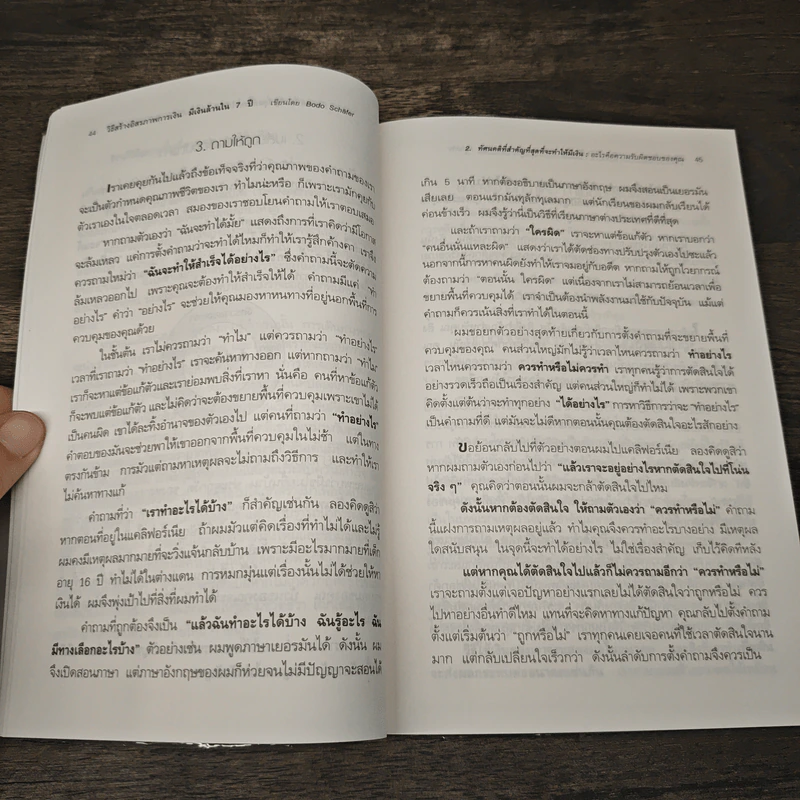 44 วิธีสร้างอิสรภาพการเงิน มีเงินล้านใน 7 ปี เขียนโดย Bodo Schäfer
3. ถามให้ถูก
เราเคยคุยกันไปแล้วถึงข้อเท็จจริงที่ว่าคุณภาพของคำถามของเรา
จะเป็นตัวกำหนดคุณภาพชีวิตของเรา ทำไมน่ะหรือ ก็เพราะเรามักคุยกับ
ตัวเราเองในใจตลอดเวลา สมองของเราชอบโยนคำถามให้เราตอบเสมอ
หากถามตัวเองว่า "ฉันจะทำได้มั้ย" แสดงถึงการที่เราคิดว่ามีโอกาส
จะล้มเหลว แค่การตั้งคำถามว่าจะทำได้ไหมก็ทำให้เรารู้สึกค้างคา เราจึง
ควรถามใหม่ว่า "ฉันจะทำให้สำเร็จได้อย่างไร" ซึ่งคำถามนี้จะตัดความ
ล้มเหลวออกไป เพราะคุณจะต้องทำให้สำเร็จให้ได้ คำถามมีแค่ "ทำ
อย่างไร" คำว่า "อย่างไร" จะช่วยให้คุณมองหาหนทางที่อยู่นอกพื้นที่การ
ควบคุมของคุณด้วย
ในขั้นต้น เราไม่ควรถามว่า "ทำไม" แต่ควรถามว่า "ทำอย่างไร"
เวลาที่เราถามว่า "ทำอย่างไร" เราจะค้นหาทางออก แต่หากถามว่า "ทำไม"
เราก็จะหาแต่ข้อแก้ตัวและเราย่อมพบสิ่งที่เราหา นั่นคือ คนที่หาข้อแก้ตัว
ก็จะพบแต่ข้อแก้ตัว และไม่คิดว่าจะต้องขยายพื้นที่ควบคุมเพราะเขาไม่ได้
เป็นคนผิด เขาได้ละทิ้งอำนาจของตัวเองไป แต่คนที่ถามว่า "ทำอย่างไร"
คำตอบของมันจะช่วยพาให้เขาออกจากพื้นที่ควบคุมในไม่ช้า แต่ในทาง
ตรงกันข้าม การมัวแต่ถามหาเหตุผลจะไม่ถามถึงวิธีการ และทำให้เรา
ไม่ค้นหาทางแก้
คำถามที่ว่า "เราทำอะไรได้บ้าง" ก็สำคัญเช่นกัน ลองคิดดูสิว่า
หากตอนที่อยู่ในแคลิฟอร์เนีย ถ้าผมมัวแต่คิดเรื่องที่ทำไม่ได้และไม่รู้
ผมคงมีเหตุผลมากมายที่จะวิ่งแจ้นกลับบ้าน เพราะมีอะไรมากมายที่เด็ก
อายุ 16 ปี ทำไม่ได้ในต่างแดน การหมกมุ่นแต่เรื่องนั้นไม่ได้ช่วยให้หา
เงินได้ ผมจึงพุ่งเป้าไปที่สิ่งที่ผมทำได้
คำถามที่ถูกต้องจึงเป็น "แล้วฉันทำอะไรได้บ้าง ฉันรู้อะไร ฉัน
มีทางเลือกอะไรบ้าง" ตัวอย่างเช่น ผมพูดภาษาเยอรมันได้ ดังนั้น ผม
จึงเปิดสอนภาษา แต่ภาษาอังกฤษของผมก็ห่วยจนไม่มีปัญญาจะสอนได้
2. ทัศนคติที่สำคัญที่สุดที่จะทำให้มีเงิน : อะไรคือความรับผิดชอบของคุณ 45
เกิน 5 นาที หากต้องอธิบายเป็นภาษาอังกฤษ ผมจึงสอนเป็นเยอรมัน
เสียเลย ตอนแรกมันทุลักทุเลมาก แต่นักเรียนของผมกลับเรียนได้
ค่อนข้างเร็ว ผมจึงรู้ว่านี่เป็นวิธีที่เรียนภาษาต่างประเทศที่ดีที่สุด
และถ้าเราถามว่า "ใครผิด" เราจะหาแต่ข้อแก้ตัว หากเราบอกว่า
"คนอื่นนั่นแหละผิด" แสดงว่าเราได้ตัดช่องทางปรับปรุงตัวเองไปซะแล้ว
นอกจากนี้การหาคนผิดยังทำให้เราจมอยู่กับอดีต หากถามให้ถูกไวยากรณ์
ต้องถามว่า "ตอนนั้น ใครผิด" แต่เนื่องจากเราไม่สามารถย้อนเวลาเพื่อ
ขยายพื้นที่ควบคุมได้ เราจำเป็นต้องนำพลังงานมาใช้กับปัจจุบัน แม้แต่
คำถามก็ควรเน้นสิ่งที่เราทำได้ในตอนนี้
ผมขอยกตัวอย่างสุดท้ายเกี่ยวกับการตั้งคำถามที่จะขยายพื้นที่
ควบคุมของคุณ คนส่วนใหญ่มักไม่รู้ว่าเวลาไหนควรถามว่า ทำอย่างไร
เวลาไหนควรถามว่า ควรทำหรือไม่ควรทำ เราทุกคนรู้ว่าการตัดสินใจได้
อย่างรวดเร็วถือเป็นเรื่องสำคัญ แต่คนส่วนใหญ่ก็ทำไม่ได้ เพราะพวกเขา
คิดตั้งแต่ต้นว่าจะทำทุกอย่าง "ได้อย่างไร" การหาวิธีการว่าจะ "ทำอย่างไร"
เป็นคำถามที่ดี แต่มันจะไม่ดีหากตอนนั้นคุณต้องตัดสินใจอะไรสักอย่าง
ขอย้อนกลับไปที่ตัวอย่างตอนผมไปแคลิฟอร์เนีย ลองคิดดูสิว่า
หากผมถามตัวเองก่อนไปว่า "แล้วเราจะอยู่อย่างไรหากตัดสินใจไปที่โน่น
จริง ๆ" คุณคิดว่าตอนนั้นผมจะกล้าตัดสินใจไปไหม
ดังนั้นหากต้องตัดสินใจ ให้ถามตัวเองว่า "ควรทำหรือไม่" คำถาม
นี้แฝงการถามเหตุผลอยู่แล้ว ทำไมคุณจึงควรทำอะไรบางอย่าง มีเหตุผล
ใดสนับสนุน ในจุดนี้จะทำได้อย่างไร ไม่ใช่เรื่องสำคัญ เก็บไว้คิดทีหลัง
แต่หากคุณได้ตัดสินใจไปแล้วก็ไม่ควรถามอีกว่า "ควรทำหรือไม่"
เราจะถามตั้งแต่เจอปัญหาอย่างแรกเลยไม่ได้ตัดสินใจว่าถูกหรือไม่ ควร
ไปหาอย่างอื่นทำดีไหม แทนที่จะคิดหาทางแก้ปัญหา คุณกลับไปตั้งคำถาม
ตั้งแต่เริ่มต้นว่า "ถูกหรือไม่" เราทุกคนเคยเจอคนที่ใช้เวลาตัดสินใจนาน
มาก แต่กลับเปลี่ยนใจเร็วกว่า ดังนั้นลำดับการตั้งคำถามจึงควรเป็น